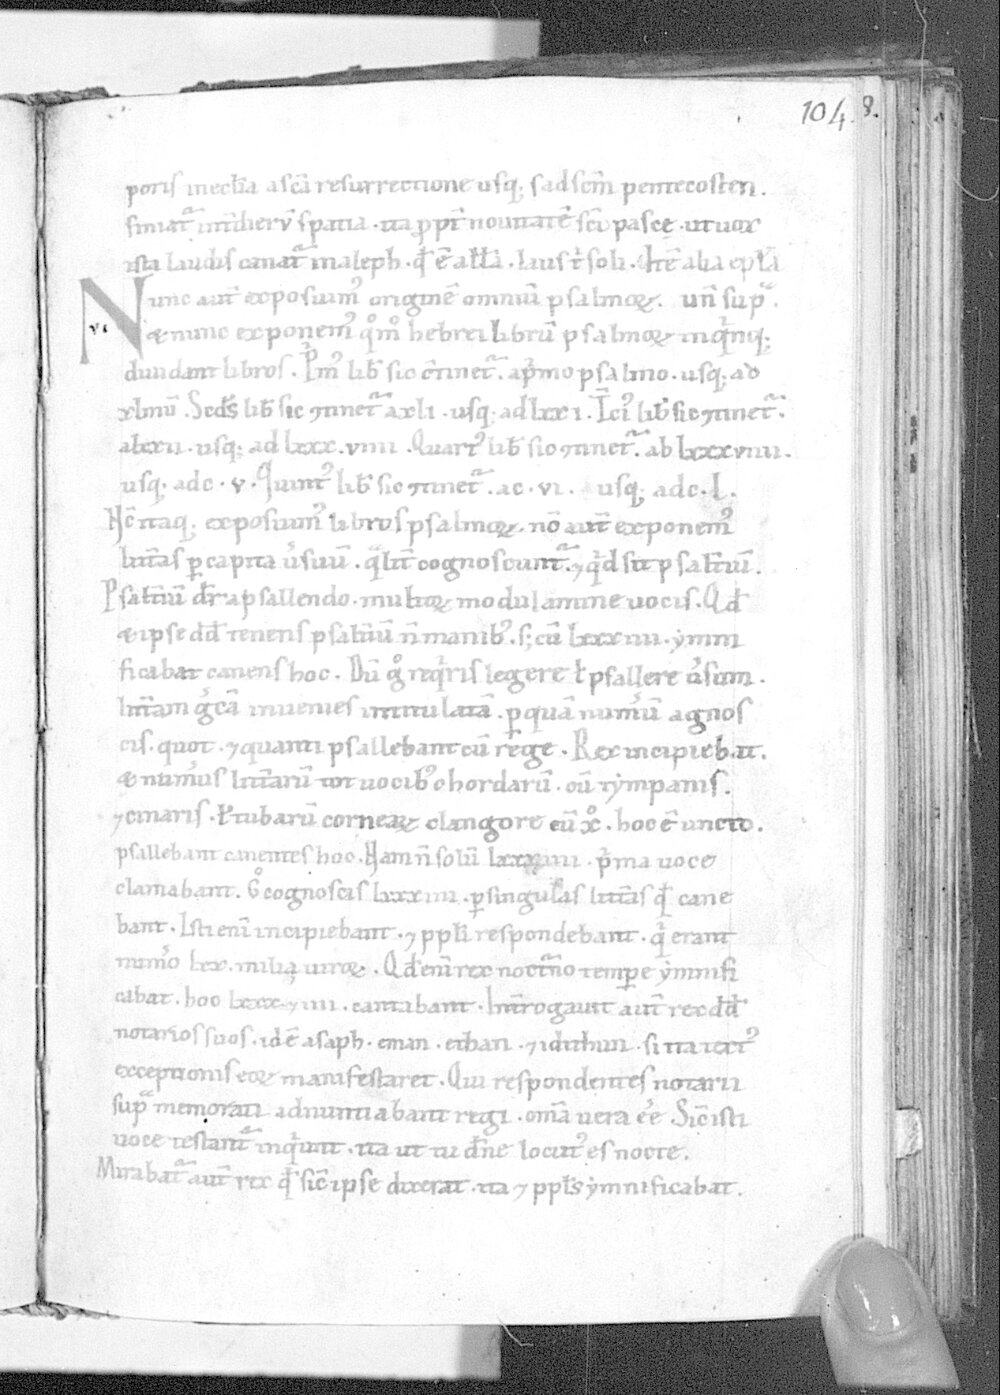 104 8.
poris in ecctia a scā resurrectione usq; ad scm̄ pentecosten.
finiat᷑ int̄ dierū spatia. ita ꝓpt̄ nouitatē scī pasce. ut uox
ista laudis canat᷑ in aleph. qd̄ ē allā. laus t̄ soli. Itē alia epłā
vi
Nunc aut̄ exposuimꝰ originē omniū psalmoꝝ. un̄ sup᷑.
& nunc exponemꝰ qͦmͦ hebrei librū psalmoꝝ inqͥnq;
diuidant libros. Pͥmꝰ lib̄ sic ꝯtinet᷑. a pͥmo psalmo. usq; ad
xlmū. Scdꝰ lib̄ sic ꝯtinet᷑ a xli. usq; ad lxxi. Tciꝰ lib̄ sic ꝯtinet᷑.
a lxxii. usq; ad lxxx.viiii. Quartꝰ lib̄ sic ꝯtinet᷑. ab lxxxviiii.
usq; ad c.v. Quintꝰ lib̄ sic ꝯtinet᷑. a c.vi. usq; ad c.l.
Hc̄ itaq; exposuimꝰ libros psalmoꝝ. nō aut̄ exponemꝰ
litt̄as ꝑ capita ūsuū. qͣlit̄ cognoscunt᷑. ⁊ qͥd sit psalt̄iū.
Psalt̄iū dr̄ a psallendo. multoꝝ modulamine uocis. Qd̄
& ipse dd̄ tenens psalt̄iū in manibꝰ. s; cū lxxiiii. ymni
ficabat canens hoc. Dū gͦ reqͥris legere ł psallere ūsum.
litt̄am grecā inuenies intitulatā. ꝑ quā numerū agnos
cis. quot. ⁊ quanti psallebant cū rege. Rex incipiebat.
& numerus litt̄arū tot uocibꝰ chordarū. cū tympanis.
⁊ cinaris. ł tubarū corneaꝝ clangore cū xͦ. hoc ē uncto.
psallebant canentes hoc. Nam n̄ solū lxxiiii. pͥma uoce
clamabant. Gͦ cognoscis lxxiiii. ꝑ singulas litt̄as qd̄ cane
bant. Isti eni incipiebant. ⁊ ppłi respondebant. qͥ erant
numero lxx. milia uiroꝝ. Qd̄ eni rex nocturno tempore ymnifi
cabat. hoc lxx ⁊ iiii. cantabant. Int̄rogauit aut̄ rex dd̄
notarios suos. id ē asaph. eman. ethan. ⁊ idithun. si ita tectꝰ
exceptionis eoꝝ manifestaret. Qui respondentes notarii
supͣ memorati adnuntiabant regi. oma uera ee. Sic isti
uoce testant᷑ inqͥunt. ita ut tu dn̄e locutꝰ es nocte.
Mirabat᷑ aut̄ rex qd̄ sic ipse dixerat. ita ⁊ ppłs ymnificabat.